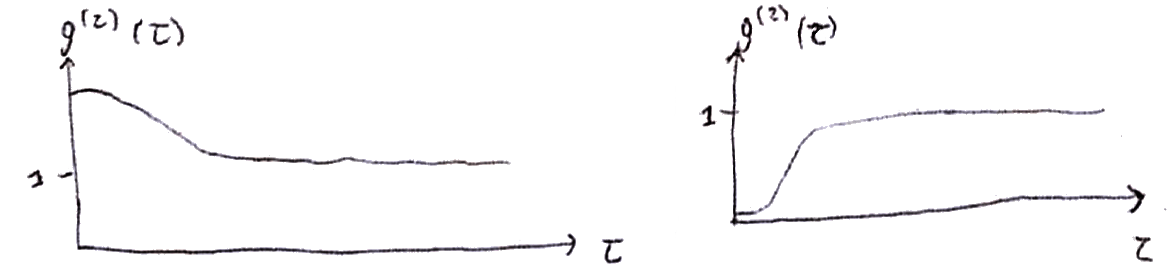 g⁽²⁾(τ)
1
τ
g⁽²⁾(τ)
1
τ